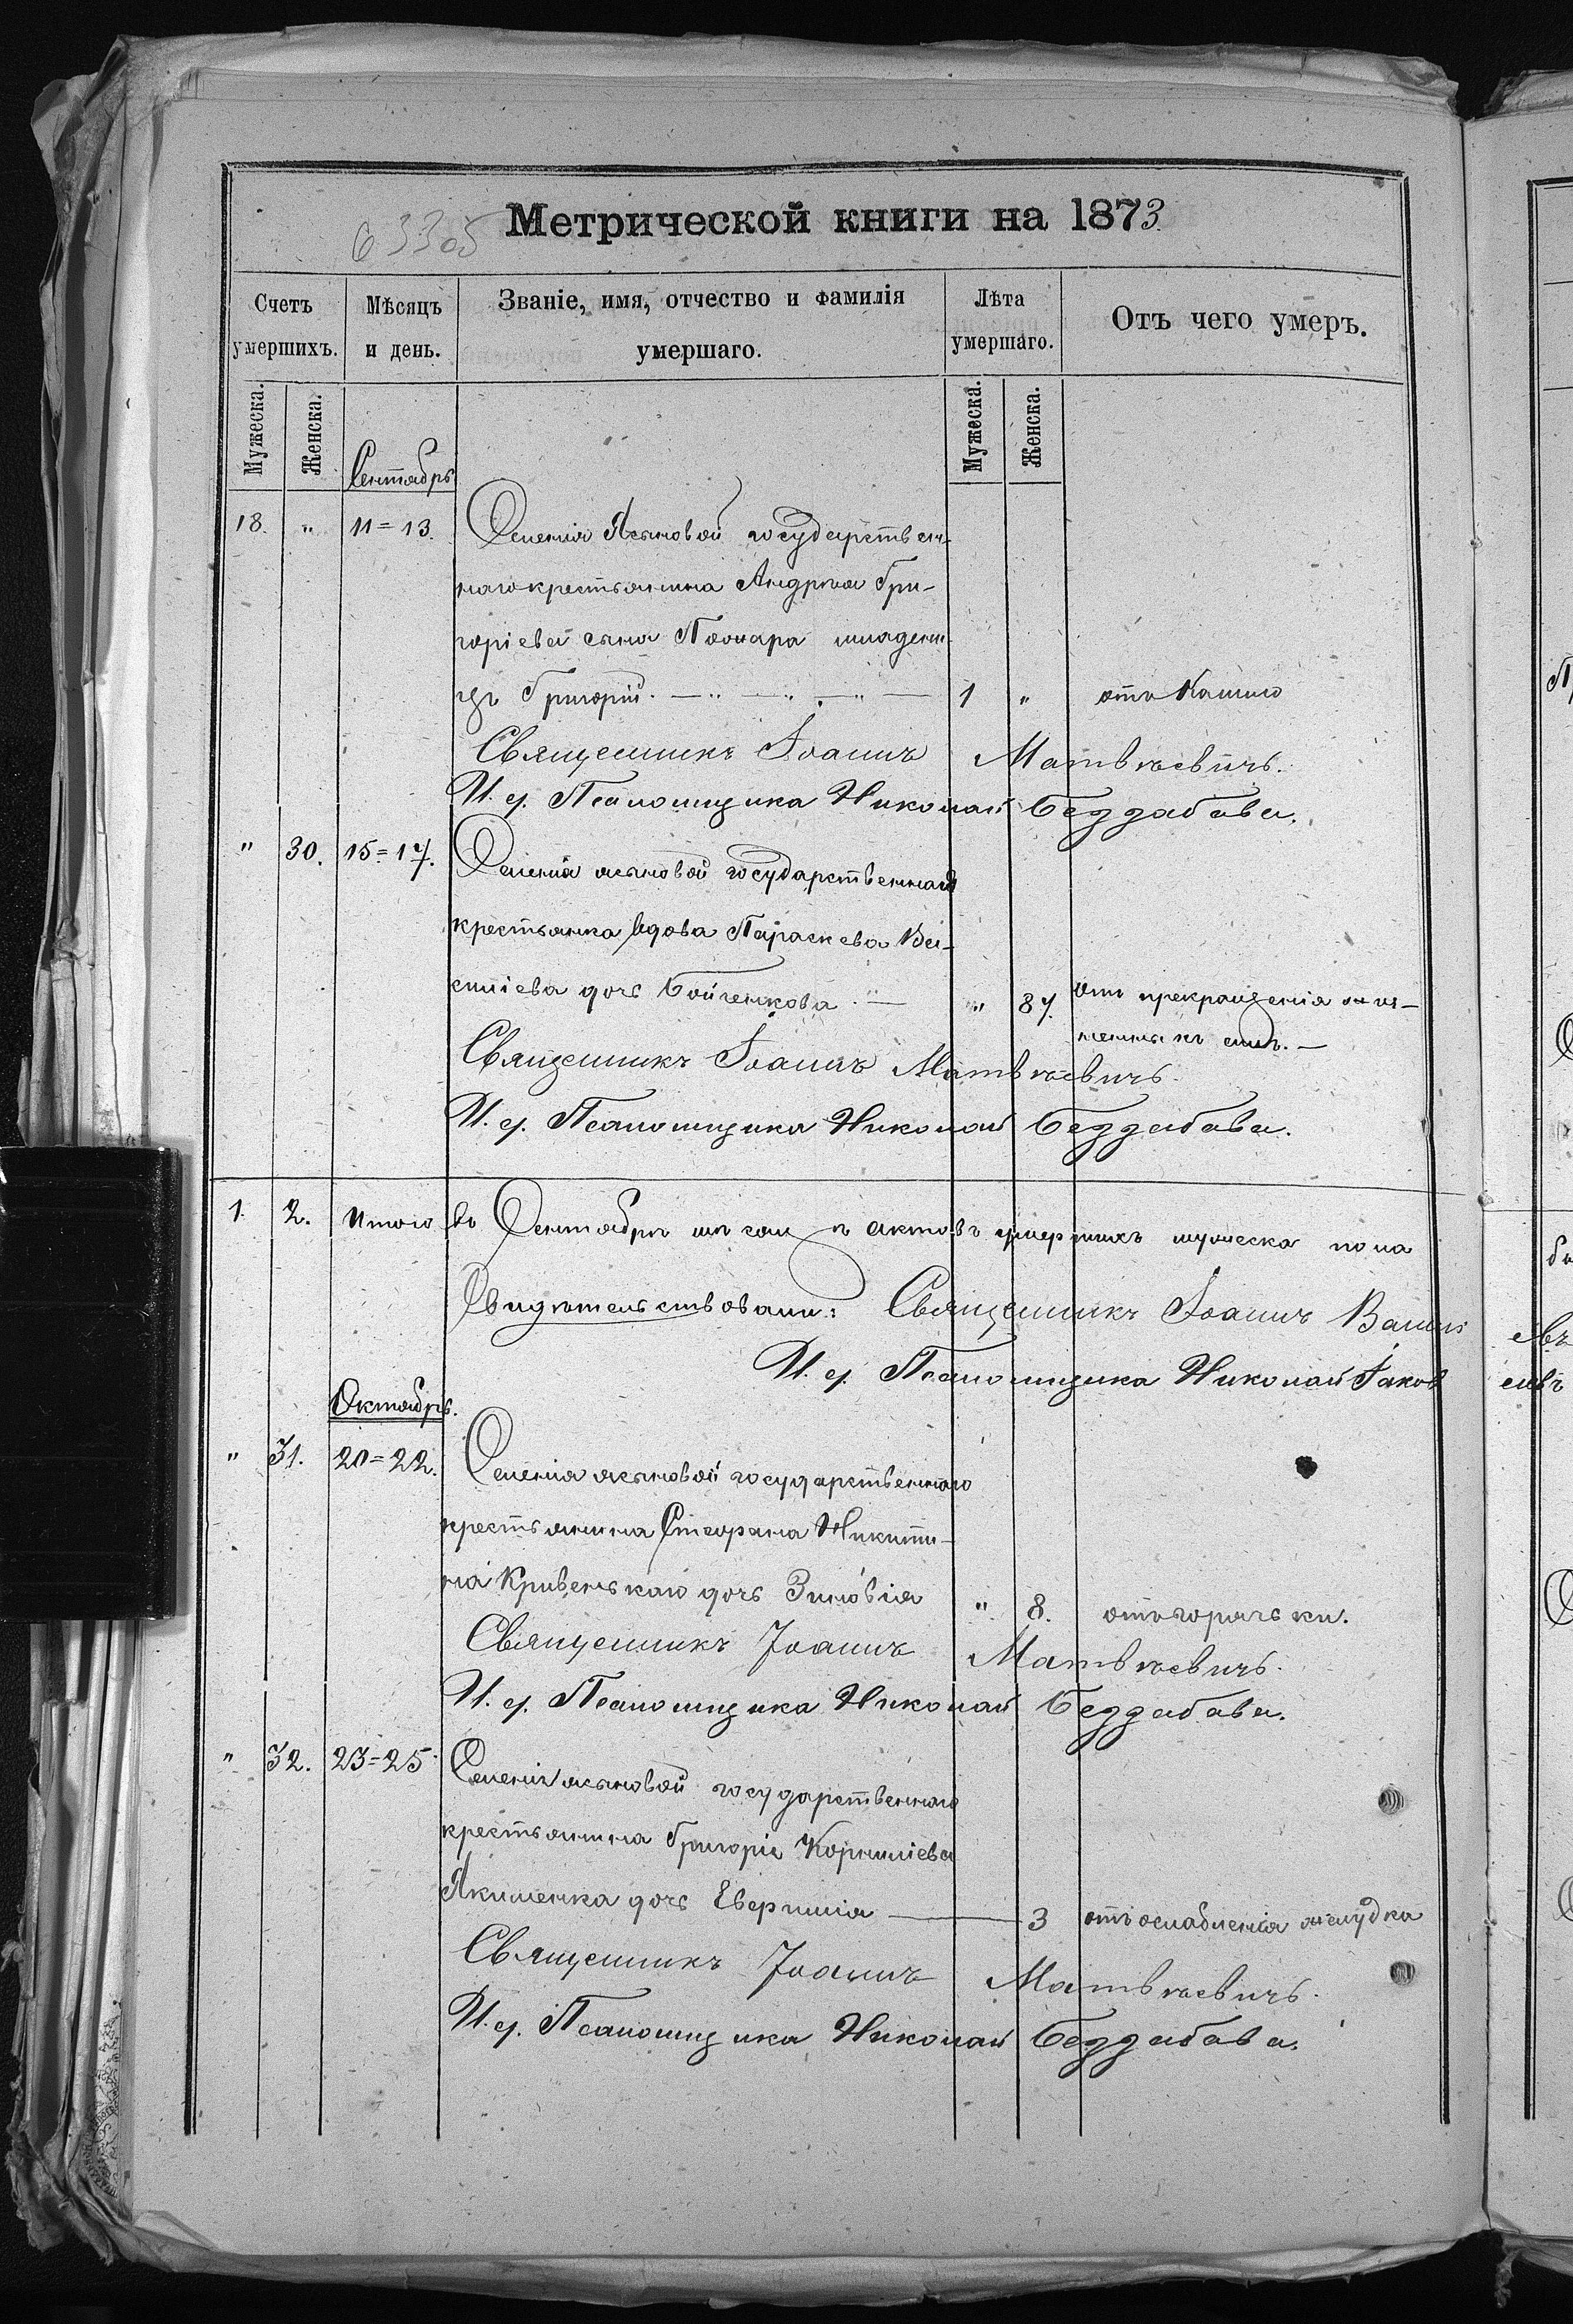 Метрической книги на 1873
63305
Счетъ умершихъ.
Мѣсяцъ и день.
Званіе, имя, отчество и фамилія умершаго.
Лѣта умершаго.
Отъ чего умеръ.
Мужеска.
Женска.
Мужеска.
Женска.
Сентябрь
18. " 11=13. Селенія Ясыновой государствен-
наго крестьянина Андрѣя Гри-
горіева сына младен-
цъ Григорій. 1 " отъ Кашлю
Священникъ Іоаннъ Матвѣевичъ.
И. д. Псаломщика Николай Беззабава.
" 30. 15=17. Селенія ясыновой государственная
крестьянка вдова Параскева Ва-
силіева дочь Бойченкова. " 87. отъ прекращенія жиз-
ненныхъ силъ.
Священникъ Іоаннъ Матвѣевичъ.
И. д. Псаломщика Николай Беззабава.
1. 2. Итого въ Сентябрѣ мѣсяцѣ актовъ умершихъ мужеска пола
Свидѣтельствовали: Священникъ Іоаннъ Васил
И. д. Псаломщика Николай Іаков
Октябрь.
" 31. 20=22. Селенія ясыновой государственнаго
крестьянина Стефана Никити-
на Кривенькаго дочь Зиновія " 8. отъ горячьки.
Священникъ Іоаннъ Матвѣевичъ.
И. д. Псаломщика Николай Беззабава.
" 32. 23=25. Селенія ясыновой государственнаго
крестьянина Григорія Корниліева
Якименка дочь 3 отъ ослабленія желудка
Священникъ Іоаннъ Матвѣевичъ.
И. д. Псаломщика Николай Беззабава.